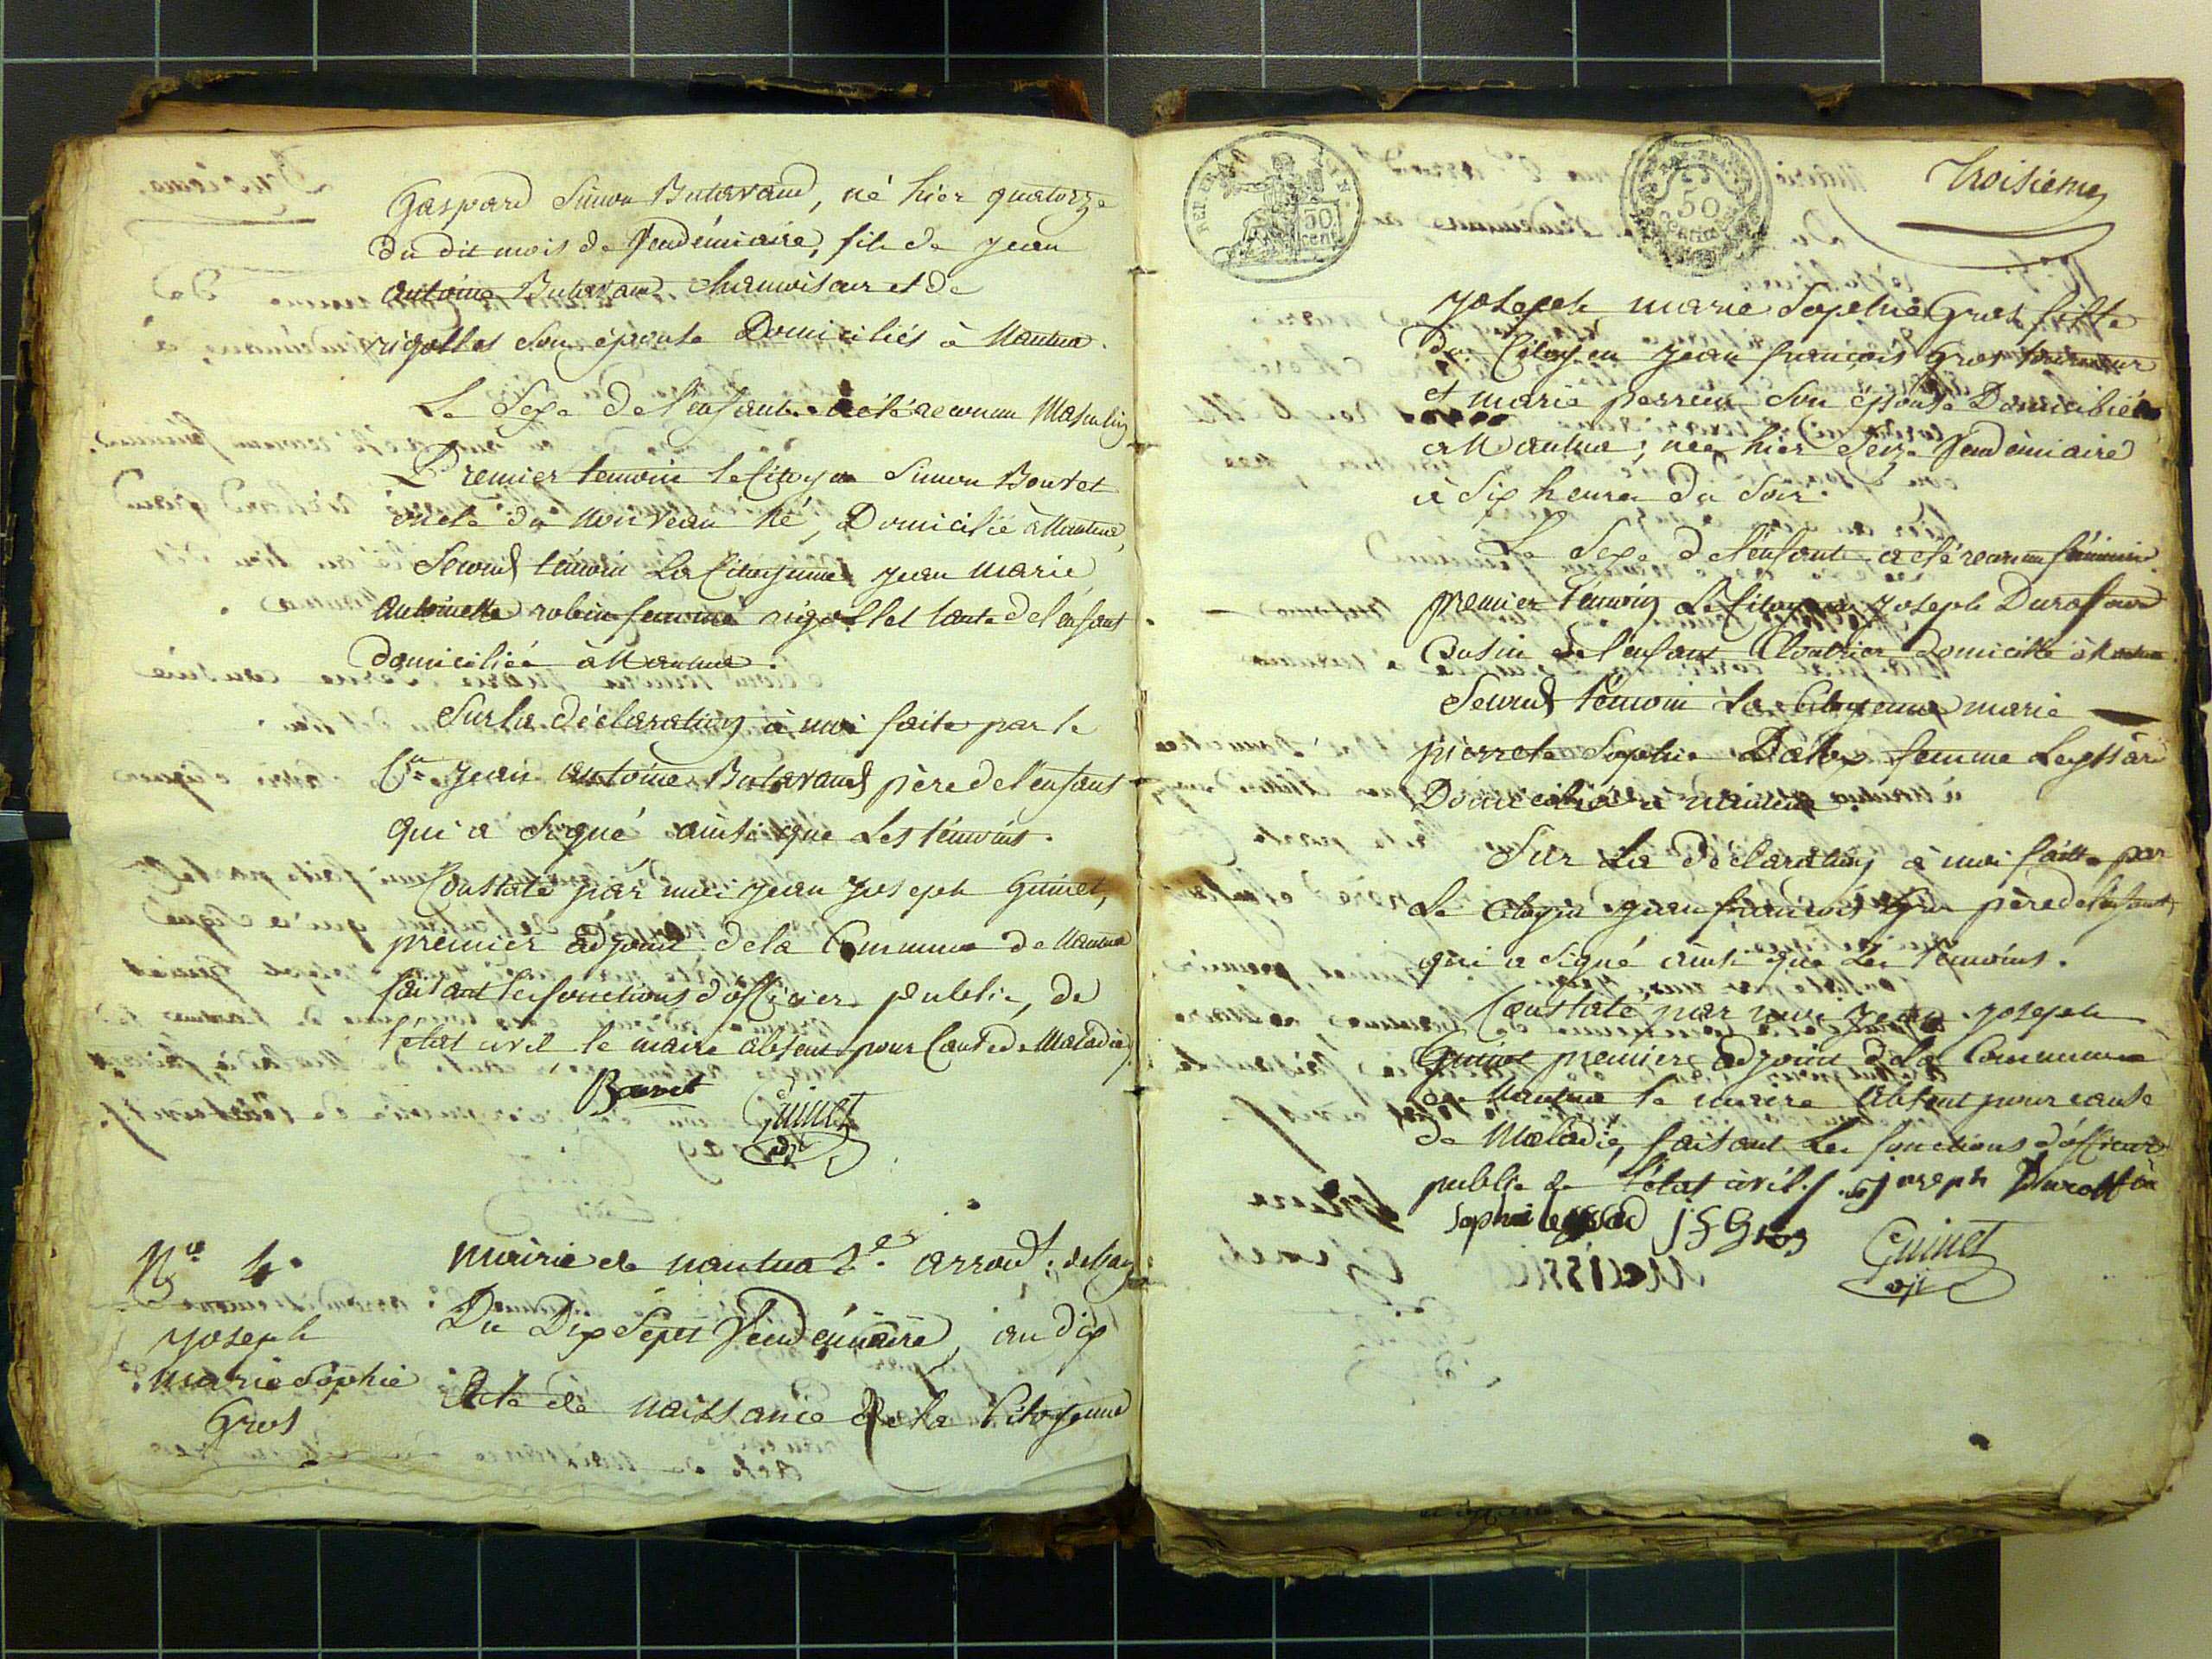 Gaspard Simon Butavand, né hier quatorze
du dit mois de Vendémiaire, fils de Jean
antoine Butavand chamoiseur et de
rigollet son épouse Domiciliés à Nantua.
Le Sexe de l'enfant a été reconnu Masculin
Premier temoin le Citoyen Simon Bouvet
oncle du Nouveau Né, Domicilié à Nantua,
Second témoin La Citoyenne Jean Marie
Antoinette robin femme rigollet tante de l'enfant
domiciliée à Nantua.
Sur la déclaration à moi faite par le
Cen Jean Antoine Butavand père de l'enfant
qui a signé ainsi que les témoins.
Constaté par moi Jean Joseph Guinet,
premier adjoint de la Commune de Nantua
faisant les fonctions d'officier public, de
l'état civil le maire absent pour Cause de Maladie
Bouvet
Guinet
adjt
No 4.
Joseph
marie Sophie
Gros
Mairie de nantua 2e. arrondt.
Du Dix Sept Vendémiaire, an dix
Acte de naissance de la Citoyenne
REP. FRA.
50
cent
50
Centimes
troisieme
Joseph marie Sophie Gros fille
du Citoyen Jean françois Gros tourneur
et marie perrein Son épouse Domiciliés
a Nantua; née hier Seize Vendémiaire
à Six heures du Soir.
Le Sexe de l'enfant a été reconnu féminin.
premier temoin Le Citoyen Joseph Duraffour
Cousin de l'enfant Cloutrier domicillié à Nantua
Second témoin la Citoyenne marie
pierrete Sophie femme Leyssard
Domiciliée a nantua.
Sur La déclaration à moi faitte par
Le Citoyen Jean françois Gros père de l'enfant
qui a signé ainsi que Les témoins.
Constaté par moi Jean Joseph
Guinet premier adjoint de la Commune
de Nantua le maire Absent pour cause
de Maladie, faisant Les fonctions d'officier
public de l'état civil. joseph Duraffour
Sophie leyssard J F Gros
Guinet
adjt